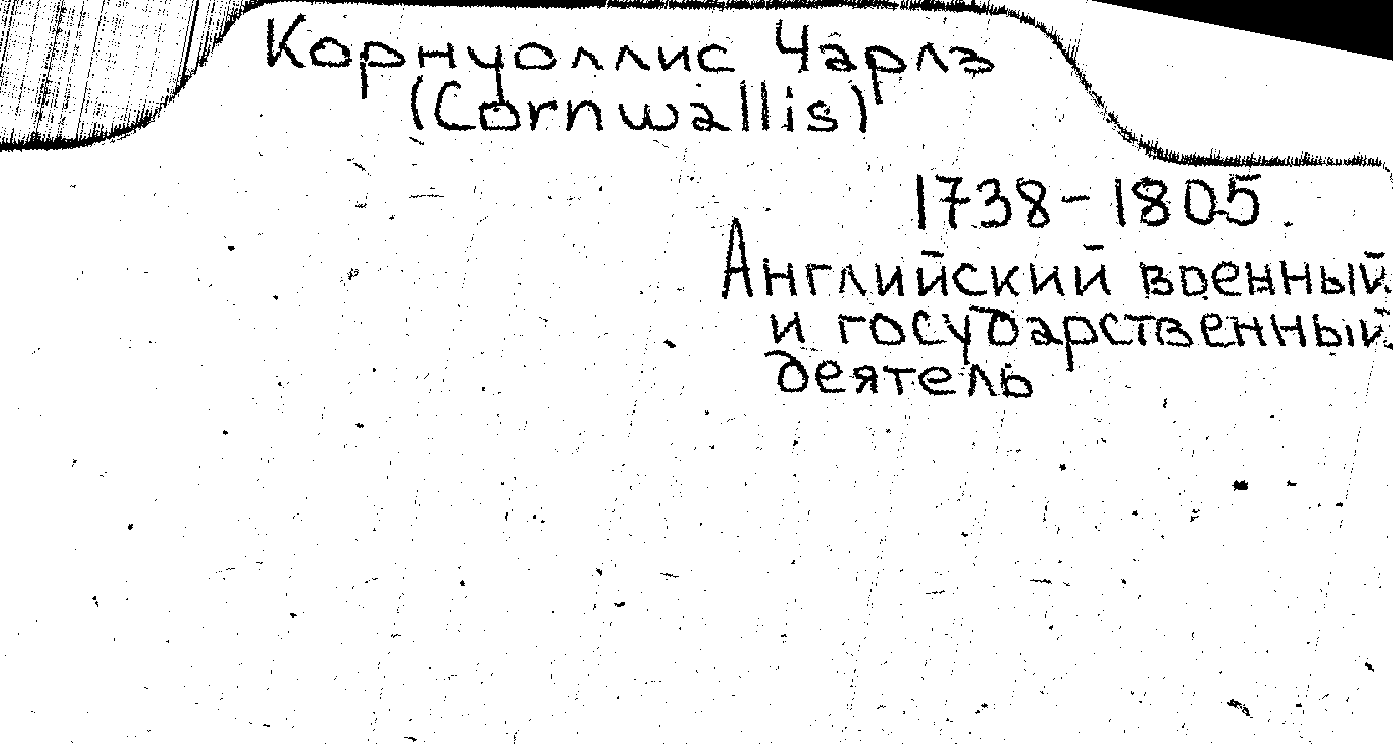 Корнуоллис Чарлз
(Cornwallis)
1738-1805.
Английский военный
и государственный
деятель